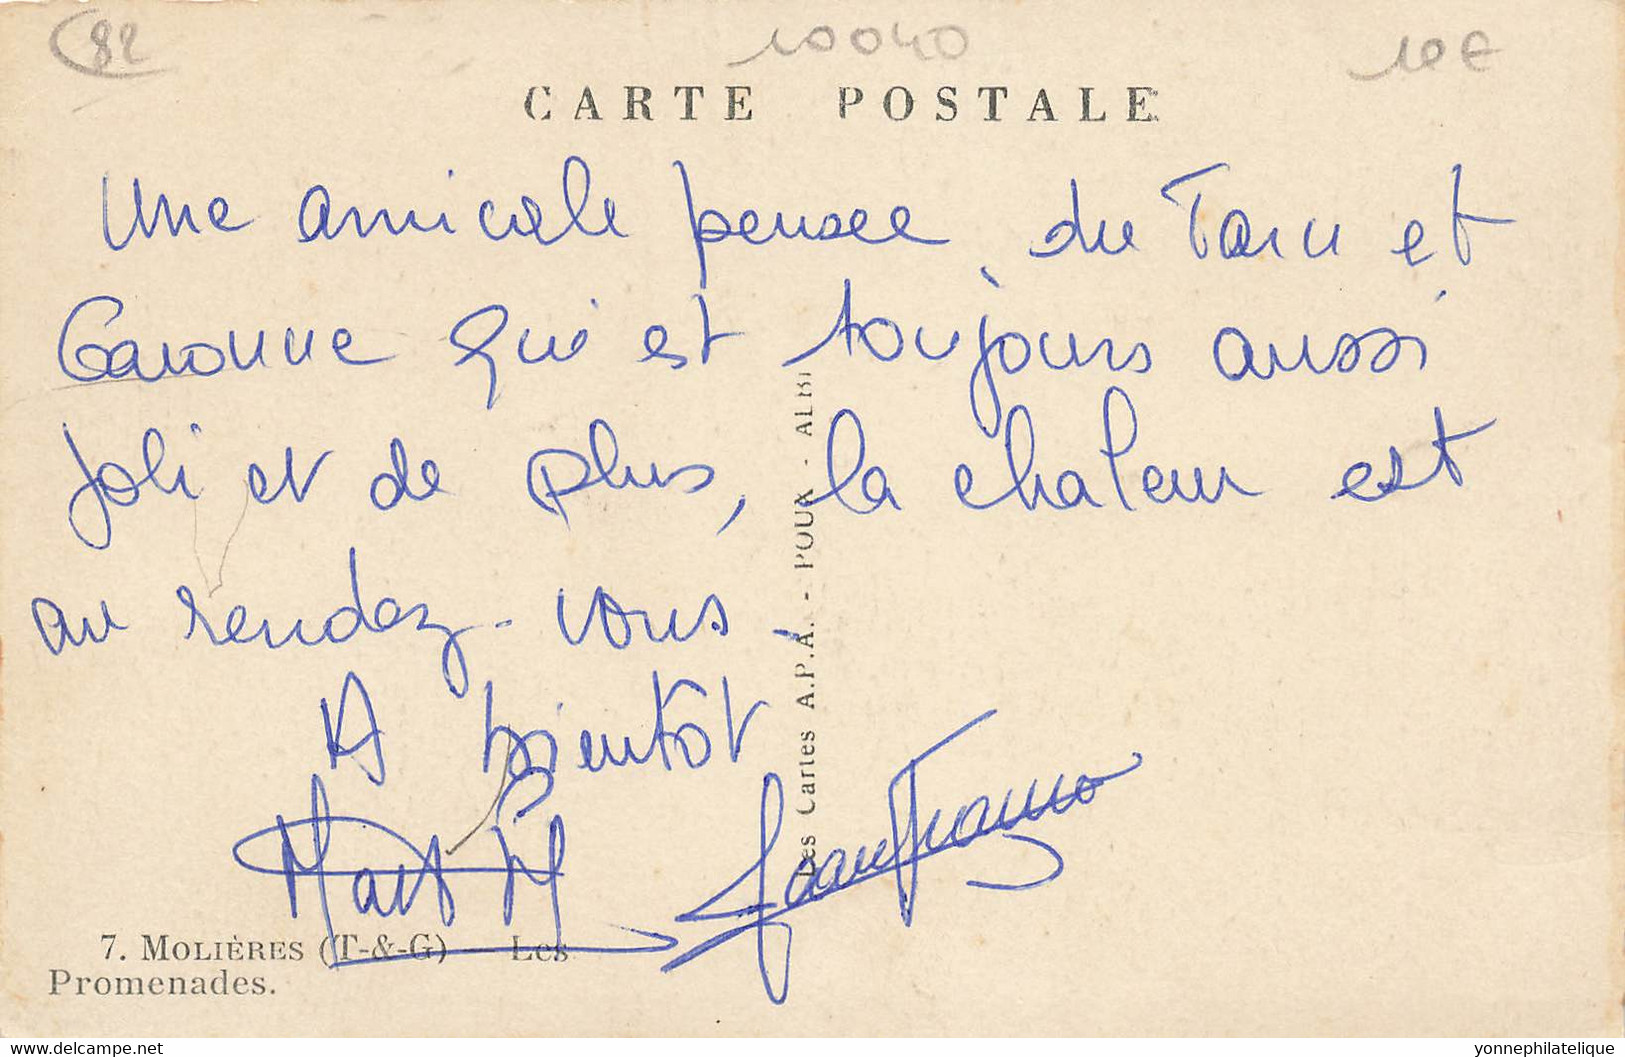 82
10040
10€
CARTE POSTALE
Une amicale pensee du Tarn et
Garonne qui est toujours aussi
joli et de plus, la chaleur est
au rendez-vous.
A bientôt
Jean Franço
7. MOLIÈRES (T-&-G) — Les
Promenades.
Les Cartes A.P.A. - POUX - ALBI
www.delcampe.net
yonnephilatelique